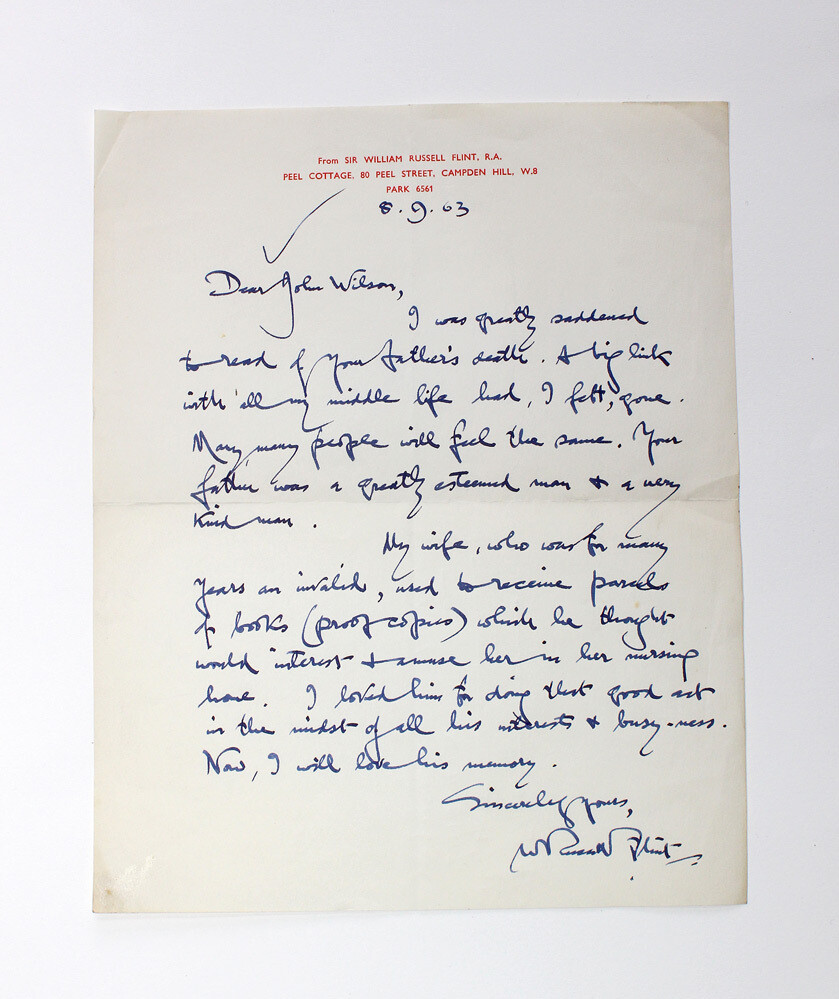 From SIR WILLIAM RUSSELL FLINT, R.A.
PEEL COTTAGE, 80 PEEL STREET, CAMPDEN HILL, W.8
PARK 6561
8.9.63
Dear John Wilson,
I was greatly saddened
to read of your father's death. A big link
with all my middle life had, I felt, gone.
Many, many people will feel the same. Your
father was a greatly esteemed man & a very
kind man.
My wife, who was for many
years an invalid, used to receive parcels
of books (proof copies) which he thought
would interest & amuse her in her nursing
home. I loved him for doing that good act
in the midst of all his interests & busy-ness.
Now, I will love his memory.
Sincerely yours,
W Russell Flint